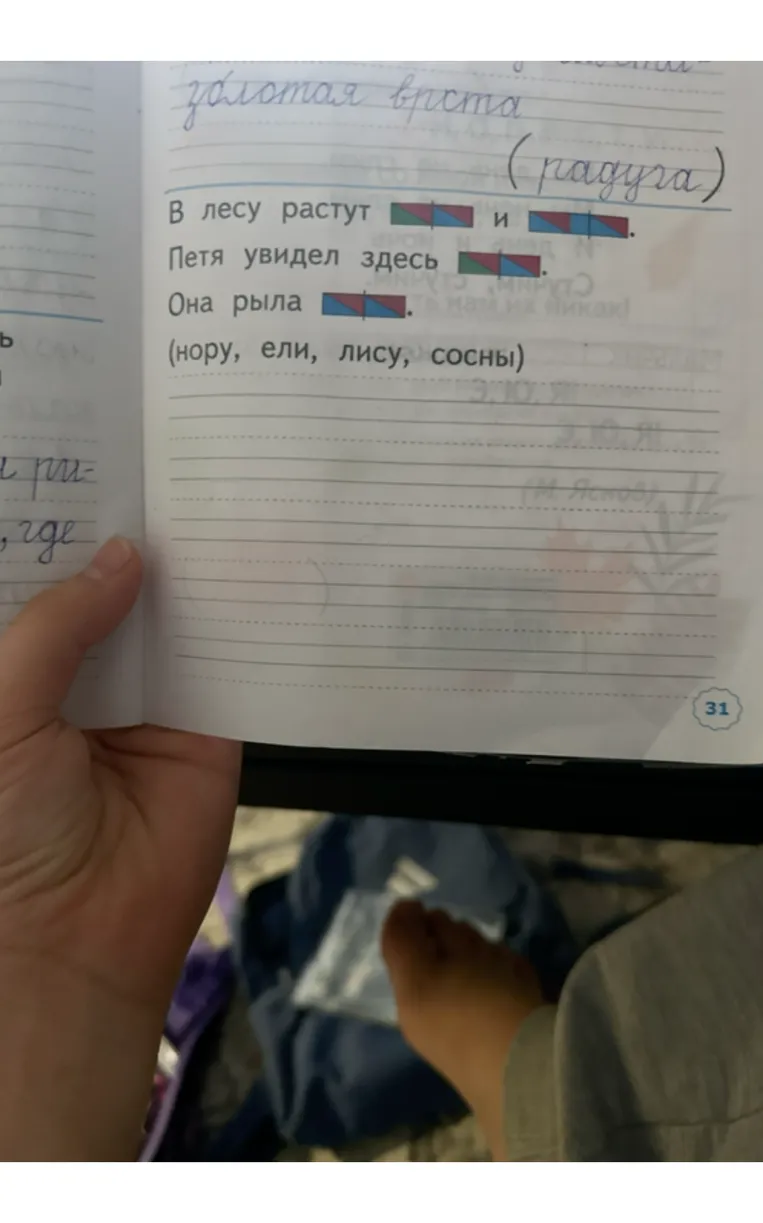 золотая врста
(радуга)
В лесу растут и .
Петя увидел здесь .
Она рыла .
(нору, ели, лису, сосны)
ь
ри-
, где
31